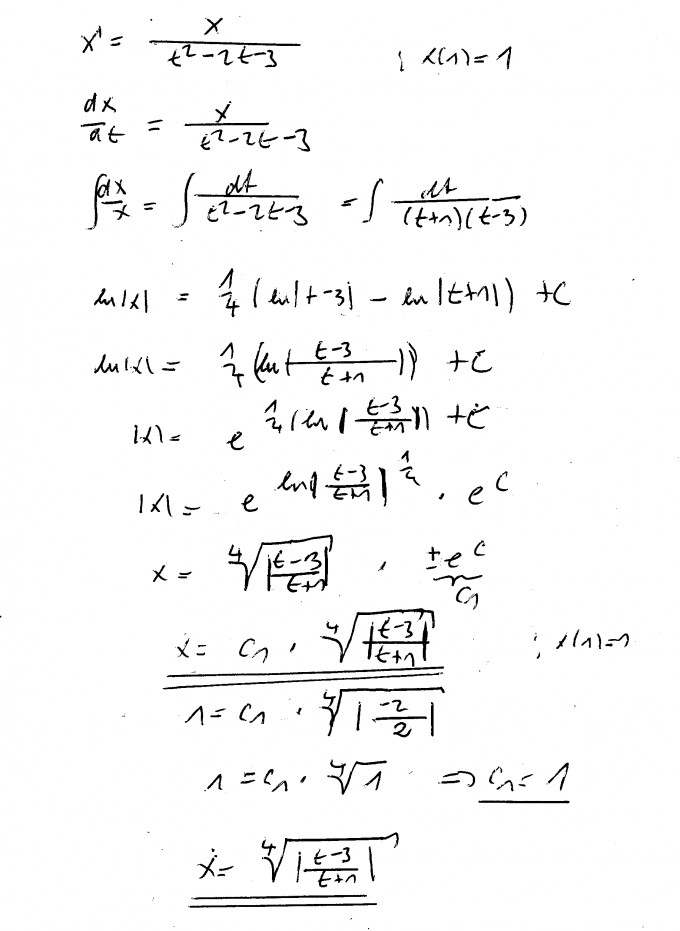 x' = x / (t² - 2t - 3) ; x(1) = 1
dx/dt = x / (t² - 2t - 3)
∫ dx/x = ∫ dt / (t² - 2t - 3) = ∫ dt / ((t+1)(t-3))
ln|x| = 1/4 (ln|t-3| - ln|t+1|) + C
ln|x| = 1/4 (ln| (t-3)/(t+1) |) + C
|x| = e^(1/4 (ln| (t-3)/(t+1) |) + C)
|x| = e^(ln| (t-3)/(t+1) |^(1/4)) · e^C
x = ⁴√(|(t-3)/(t+1)|) · ± e^C
C₁
x = C₁ · ⁴√(|(t-3)/(t+1)|) ; x(1) = 1
1 = C₁ · ⁴√(|-2/2|)
1 = C₁ · ⁴√1 => C₁ = 1
x = ⁴√(|(t-3)/(t+1)|)